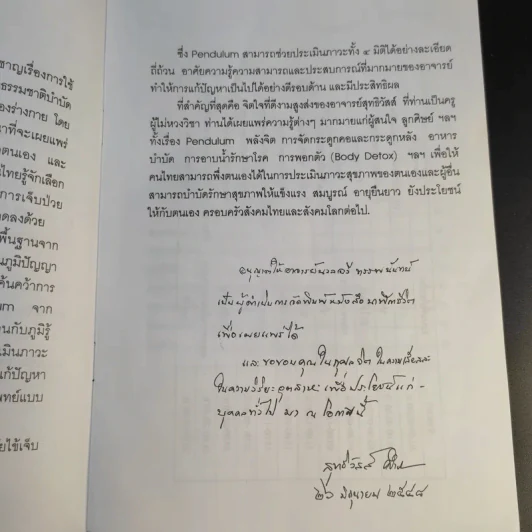 าชาญเรื่องการใช้
ธรรมชาติบำบัด
องร่างกาย โดย
าที่จะเผยแพร่
ตนเอง และ
นไทยรู้จักเลือก
การเจ็บป่วย
ดลงด้วย
พื้นฐานจาก
นภูมิปัญญา
ค้นคว้าการ
um จาก
นกับภูมิรู้
เมินภาวะ
แก้ปัญหา
ทย์แบบ
ยไข้เจ็บ
ซึ่ง Pendulum สามารถช่วยประเมินภาวะทั้ง ๔ มิติได้อย่างละเอียด
ถี่ถ้วน อาศัยความรู้ความสามารถและประสบการณ์ที่มากมายของอาจารย์
ทำให้การแก้ปัญหาเป็นไปได้อย่างดีรอบด้าน และมีประสิทธิผล
ที่สำคัญที่สุดคือ จิตใจที่ดีงามสูงส่งของอาจารย์สุทธิวัสส์ ที่ท่านเป็นครู
ผู้ไม่หวงวิชา ท่านได้เผยแพร่ความรู้ต่างๆ มากมายแก่ผู้สนใจ ลูกศิษย์ ฯลฯ
ทั้งเรื่อง Pendulum พลังจิต การจัดกระดูกคอและกระดูกหลัง อาหาร
บำบัด การอาบน้ำรักษาโรค การพอกตัว (Body Detox) ฯลฯ เพื่อให้
คนไทยสามารถพึ่งตนเองได้ในการประเมินภาวะสุขภาพของตนเองและผู้อื่น
สามารถบำบัดรักษาสุขภาพให้แข็งแรง สมบูรณ์ อายุยืนยาว ยังประโยชน์
ให้กับตนเอง ครอบครัวสังคมไทยและสังคมโลกต่อไป.
อนุญาตให้อาจารย์
เป็นผู้ดำเนินการจัดพิมพ์หนังสือ
เพื่อเผยแพร่ได้
และขอขอบคุณในกุศลจิต ในความเสียสละ
ในความวิริยะอุตสาหะ เพื่อประโยชน์แก่ -
บุคคลทั่วไป มา ณ โอกาสนี้
สุทธิวัสส์
๒๖ มิถุนายน ๒๕๔๘